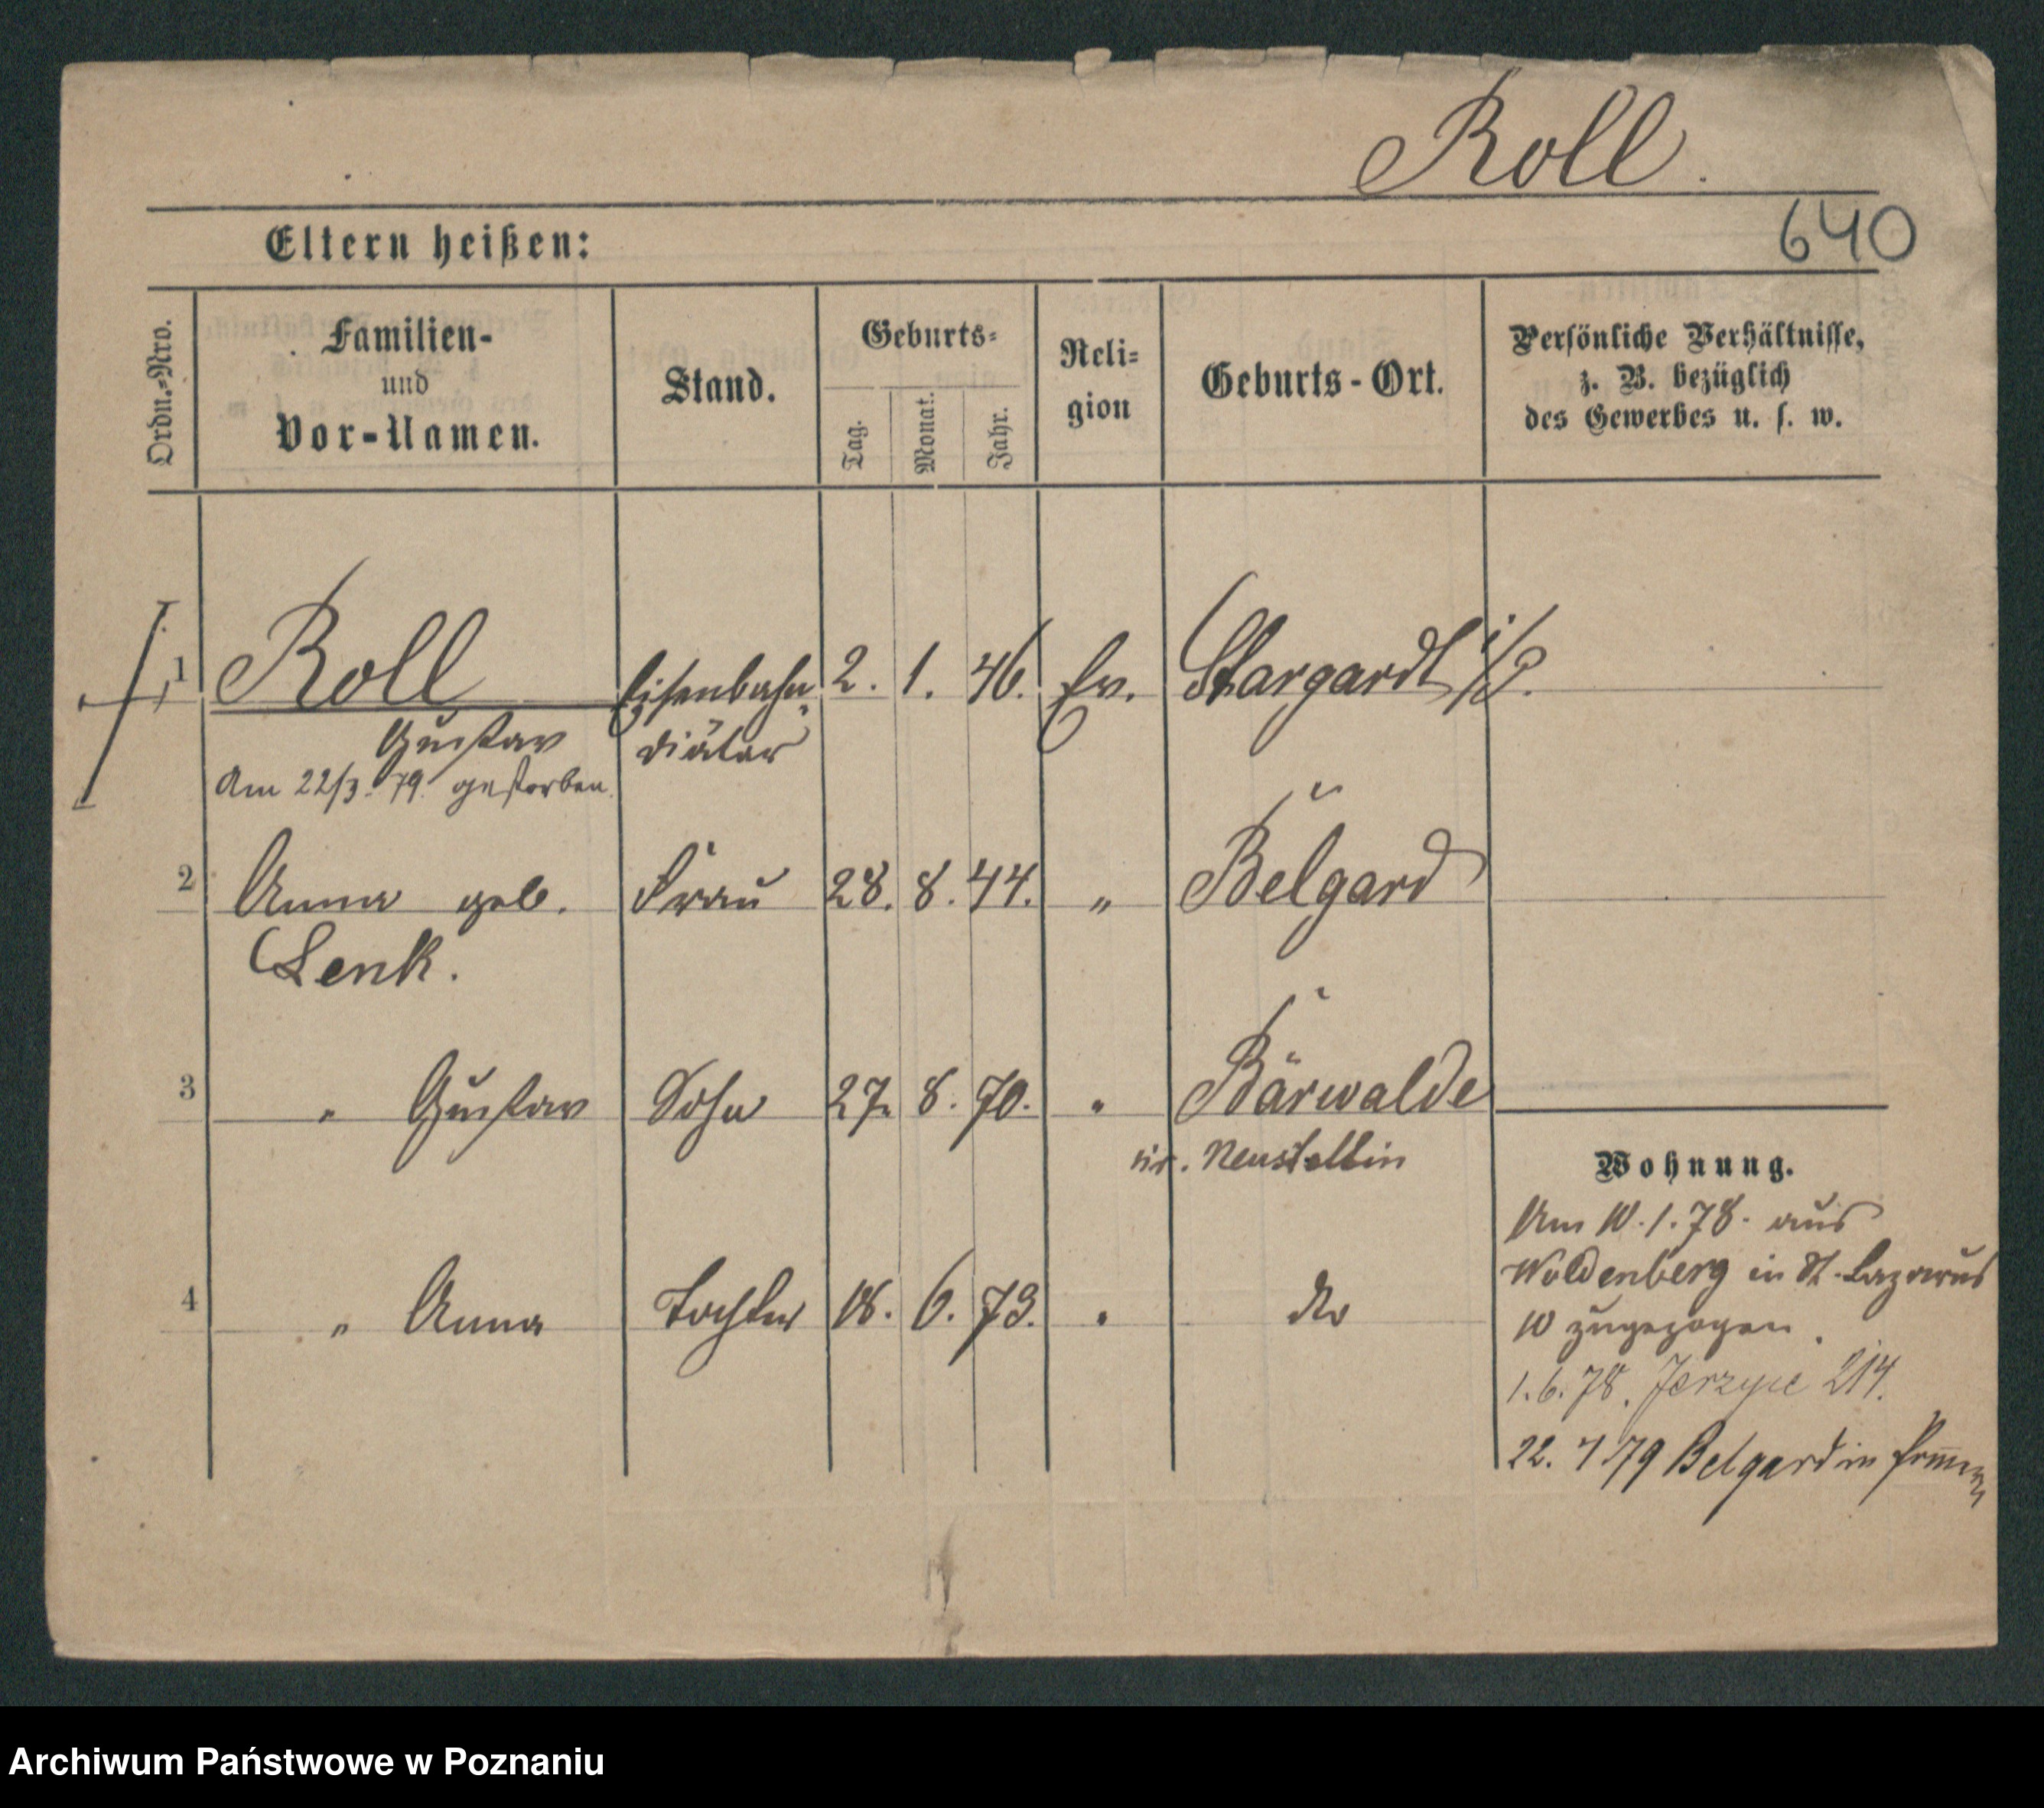 Roll.
640
Eltern heißen:
Ordn.-Nro.
Familien-
und
Vor-Namen.
Stand.
Geburts-
Tag.
Monat.
Jahr.
Reli-
gion
Geburts-Ort.
Persönliche Verhältnisse,
z. B. bezüglich
des Gewerbes u. s. w.
1 Roll Eisenbahn- 2. 1. 46. Ev. Stargardt i/P.
Gustav diätar
Am 22/3. 79. gestorben.
2 Anna geb. Frau 28. 8. 44. " Belgard
Lenk.
3 " Gustav Sohn 27. 8. 70. " Bärwalde
Kr. Neustettin
4 " Anna Tochter 18. 6. 73. " dto
Wohnung.
Am 10. 1. 78. aus
Woldenberg in St. Lazarus
10 zugezogen.
1. 6. 78. Jerzyce 214.
22. 4 79 Belgard in
Archiwum Państwowe w Poznaniu